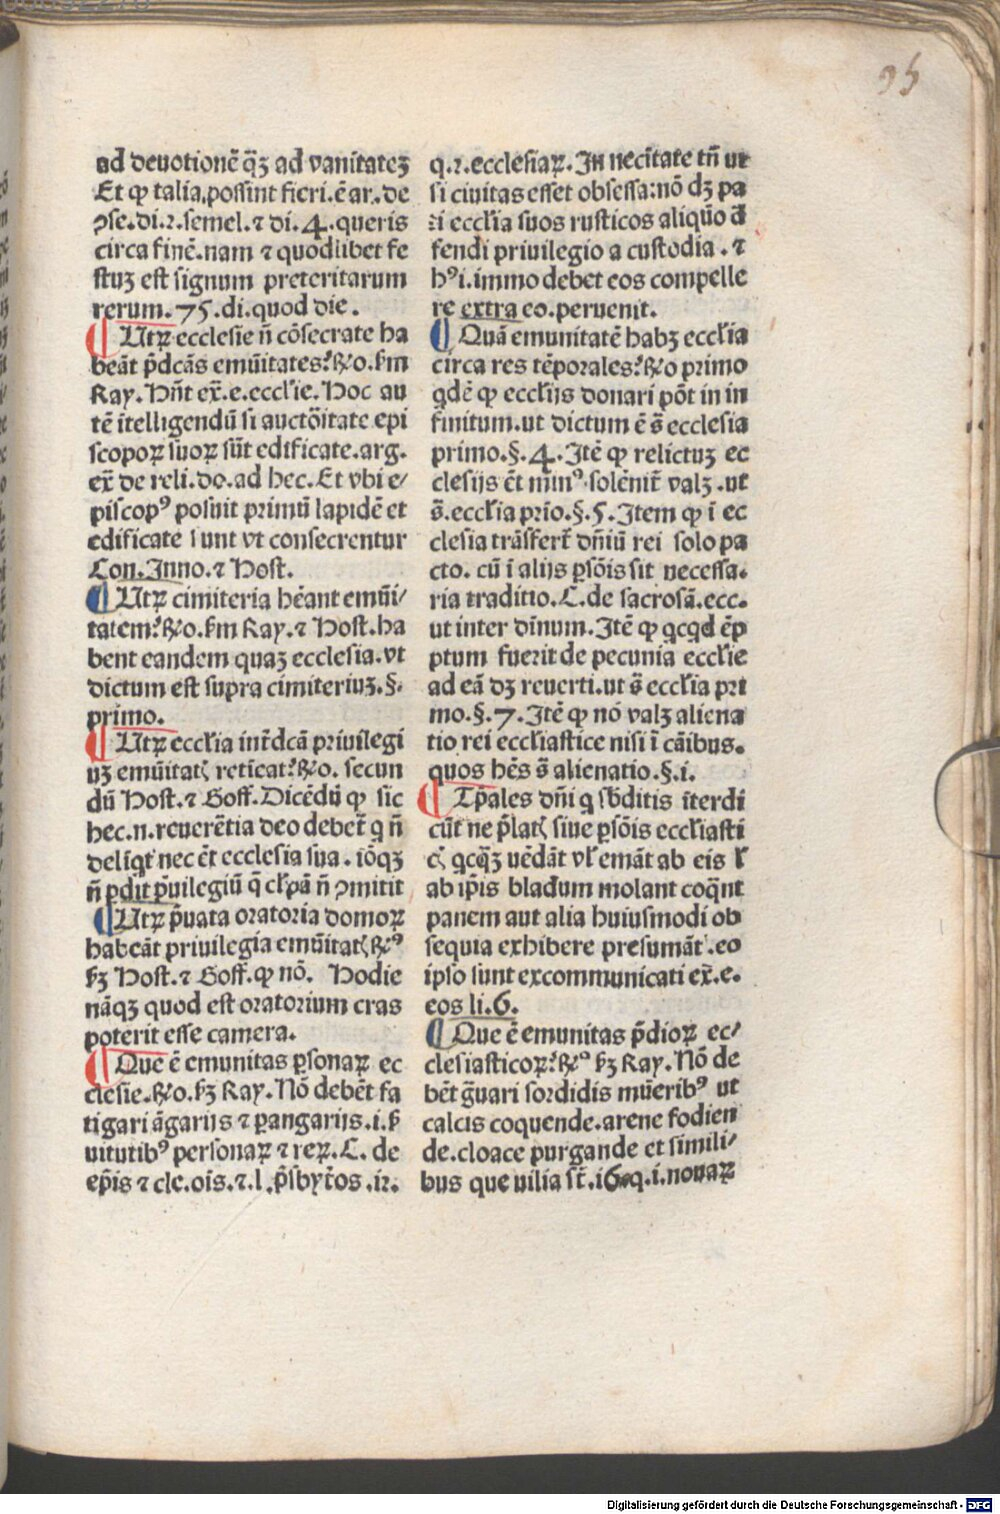 95
ad deuotionē q̄ʒ ad vanitateʒ
Et ꝙ talia.possint fieri.ē ar.de
ꝯse.di.2.semel.⁊ di.4.queris
circa finē.nam ⁊ quodlibet fe
stuʒ est signum preteritarum
rerum.75.di.quod die.
¶ Utꝝ ecclesie n̄ cōsecrate ha
beāt p̄dcās emūitates? ℟o.ẜm
Ray. Hn̄t ex̄.e.eccl'ie. Hoc au
tē itelligendū si auctōitate epi
scopoꝝ suoꝝ sūt edificate.arg.
ex̄ de reli.do.ad hec. Et vbi e/
piscopꝰ posuit primū lapidē et
edificate sunt vt consecrentur
Con.Inno.⁊ Host.
¶ Utꝝ cimiteria hēant emūi/
tatem? ℟o.ẜm Ray.⁊ Host.ha
bent eandem quaʒ ecclesia.vt
dictum est supra cimiteriuʒ.§.
primo.
¶ Utꝝ eccl'ia int̄dcā priuilegi
uʒ emūitatꝭ reticat? ℟o. secun
dū Host.⁊ Goff. Dicēdū ꝙ sic
hec.n.reuerētia deo debet̄ q n̄
deliq̄t nec ēt ecclesia sua. iōqʒ
n̄ pdit p̄uilegiū q̄ cl'pā n̄ ꝯmitit
¶ Utꝝ p̄uata oratoria domoꝝ
habeāt priuilegia emūitatꝭ ℟ꝰ
ẜʒ Host.⁊ Goff.ꝙ nō. Hodie
nāqʒ quod est oratorium cras
poterit esse camera.
¶ Que ē emunitas ꝑsonaꝝ ec
clesie. ℟o.ẜʒ Ray. Nō debēt fa
tigari āgarijs ⁊ ꝑangarijs.i.ẜ
uitutibꝰ personaꝝ ⁊ reꝝ. C. de
ep̄is ⁊ cle.ōis.⁊.l.p̄sbyt̄os.12.
q.2.ecclesiaꝝ. In nec̄itate tn̄ ut
si ciuitas esset obsessa:nō dʒ pa
ti eccl'ia suos rusticos aliquō d̄
fendi priuilegio a custodia.⁊
hꝰi.immo debet eos compelle
re extra eo.peruenit.
¶ Quā emunitatē habʒ eccl'ia
circa res tēporales? ℟o primo
qdē ꝙ eccl'ijs donari pōt in in
finitum.ut dictum ē s̄ ecclesia
primo.§.4. Itē ꝙ relictuʒ ec
clesijs ēt minꝰ solēnit̄ valʒ.ut
s̄.eccl'ia prīo.§.5. Item ꝙ ī ec
clesia trāsfert̄ dn̄iū rei solo pa
cto. cū ī alijs ꝑsōis sit necessa.
ria traditio. C.de sacrosā.ecc.
ut inter dīnum. Itē ꝙ qcqd ēp
ptum fuerit de pecunia eccl'ie
ad eā dʒ reuerti.ut s̄ eccl'ia pri
mo.§.7. Itē ꝙ nō valʒ aliena
tio rei eccl'iastice nisi ī cāibus.
quos hēs s̄ alienatio.§.i.
¶ Tp̄ales dn̄i q sb̄ditis īterdi
cūt ne p̄latꝭ siue ꝑsōis eccl'iasti
cꝭ qcq̄ʒ uēdāt vl' emāt ab eis l'
ab ip̄is bladum molant coq̄nt
panem aut alia huiusmodi ob
sequia exhibere presumāt.eo
ipso sunt excommunicati ex̄.e.
eos li.6.
¶ Que ē emunitas p̄dioꝝ ec/
clesiasticoꝝ? ℟ꝰ ẜʒ Ray. Nō de
bēt ḡuari sordidis mūeribꝰ ut
calcis coquende.arene fodien
de.cloace purgande et simili/
bus que uilia st̄.i6.q.i.nouaꝝ
Digitalisierung gefördert durch die Deutsche Forschungsgemeinschaft - DFG